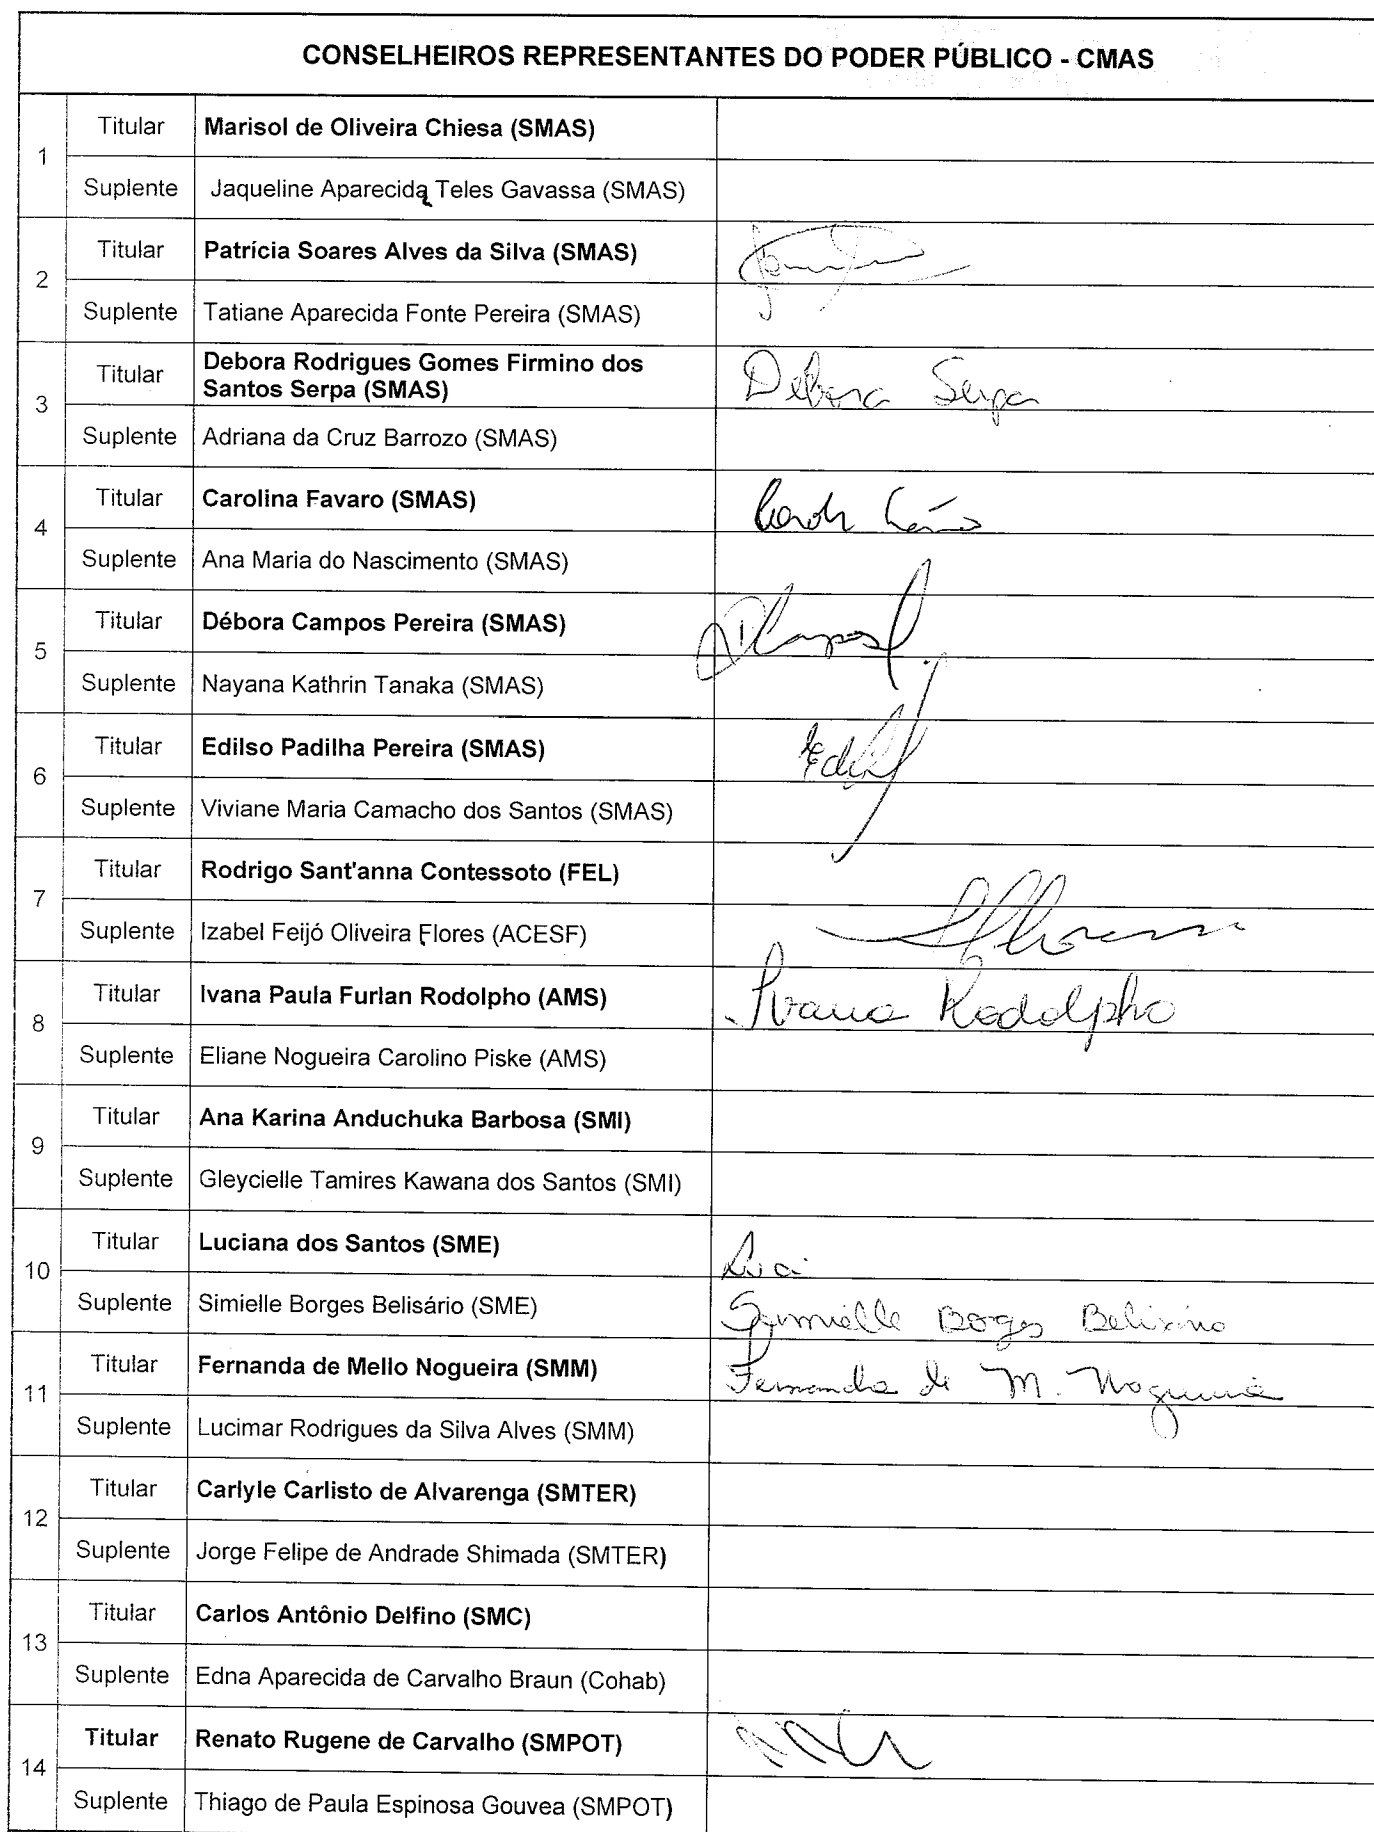 CONSELHEIROS REPRESENTANTES DO PODER PÚBLICO - CMAS
1
Titular Marisol de Oliveira Chiesa (SMAS)
Suplente Jaqueline Aparecida Teles Gavassa (SMAS)
2
Titular Patrícia Soares Alves da Silva (SMAS)
Suplente Tatiane Aparecida Fonte Pereira (SMAS)
3
Titular Debora Rodrigues Gomes Firmino dos
Santos Serpa (SMAS) Débora Serpa
Suplente Adriana da Cruz Barrozo (SMAS)
4
Titular Carolina Favaro (SMAS)
Suplente Ana Maria do Nascimento (SMAS)
5
Titular Débora Campos Pereira (SMAS) DCampos
Suplente Nayana Kathrin Tanaka (SMAS)
6
Titular Edilso Padilha Pereira (SMAS)
Suplente Viviane Maria Camacho dos Santos (SMAS)
7
Titular Rodrigo Sant'anna Contessoto (FEL)
Suplente Izabel Feijó Oliveira Flores (ACESF)
8
Titular Ivana Paula Furlan Rodolpho (AMS) Ivana Rodolpho
Suplente Eliane Nogueira Carolino Piske (AMS)
9
Titular Ana Karina Anduchuka Barbosa (SMI)
Suplente Gleycielle Tamires Kawana dos Santos (SMI)
10
Titular Luciana dos Santos (SME)
Suplente Simielle Borges Belisário (SME) Simielle Borges Belisário
11
Titular Fernanda de Mello Nogueira (SMM) Fernanda de M. Nogueira
Suplente Lucimar Rodrigues da Silva Alves (SMM)
12
Titular Carlyle Carlisto de Alvarenga (SMTER)
Suplente Jorge Felipe de Andrade Shimada (SMTER)
13
Titular Carlos Antônio Delfino (SMC)
Suplente Edna Aparecida de Carvalho Braun (Cohab)
14
Titular Renato Rugene de Carvalho (SMPOT)
Suplente Thiago de Paula Espinosa Gouvea (SMPOT)